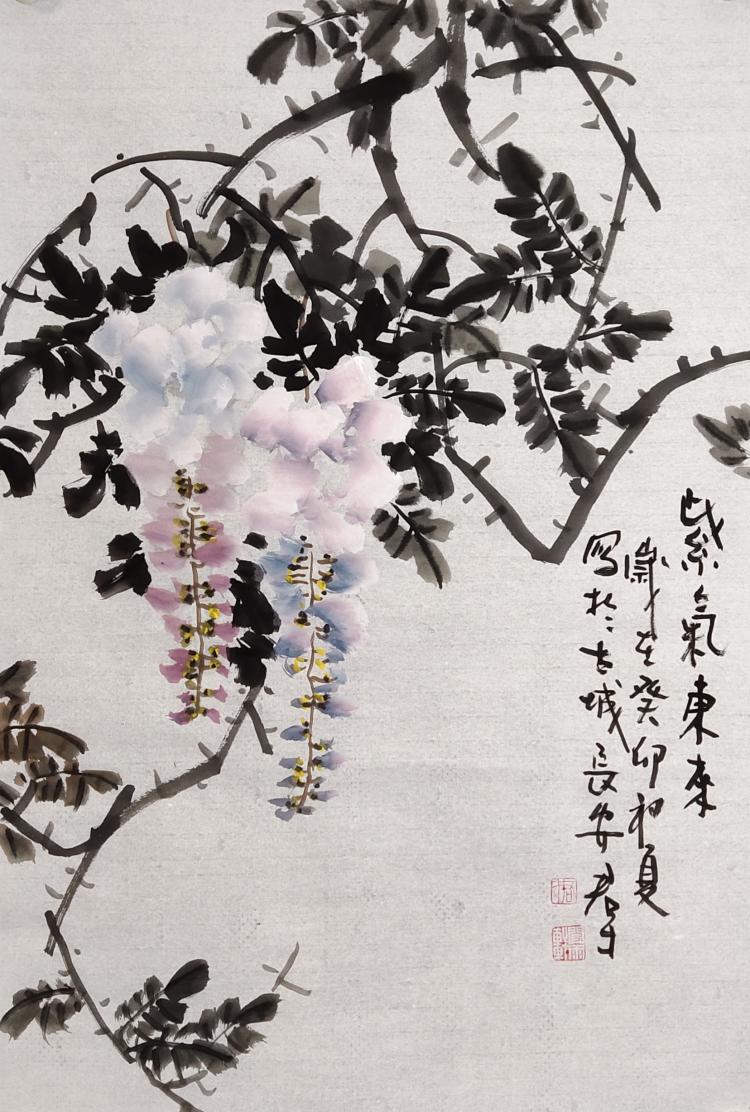 紫氣東来
歲在癸卯初夏
寫於古城長安